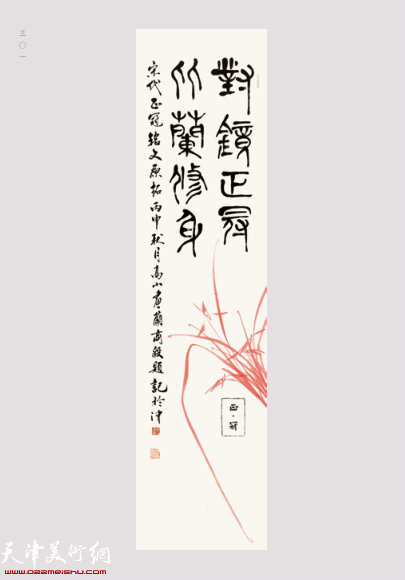 三〇一
對鏡正冠
竹蘭修身
宋代正冠銘文原拓丙申秋月高山畫蘭商毅題記於津
正·冠
天津美術網
www.022meishu.com